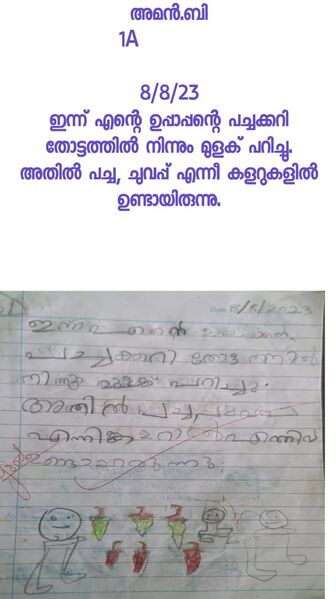 അമൻ.ബി
1A
8/8/23
ഇന്ന് എന്റെ ഉപ്പാപ്പന്റെ പച്ചക്കറി
തോട്ടത്തിൽ നിന്നും മുളക് പറിച്ചു.
അതിൽ പച്ച, ചുവപ്പ് എന്നീ കളറുകളിൽ
ഉണ്ടായിരുന്നു.
Date 8/8/2023
ഇന്ന് എന്റെ
പച്ചക്കറി തോട്ടത്തിൽ
നിന്നും മുളക് പറിച്ചു.
അതിൽ പച്ച,
ണ്ടായിരുന്നു.
good